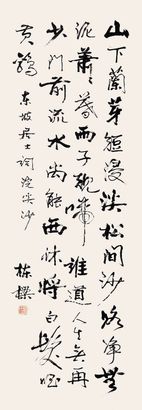 山下蘭芽短浸溪松間沙路净無
泥蕭蕭暮雨子規啼誰道人生無再
少門前流水尚能西休將白髮唱
黄鷄
東坡居士詞浣溪沙